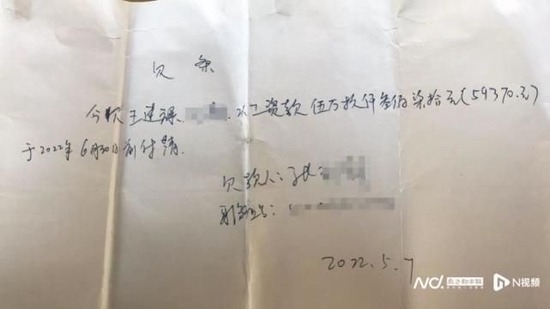 欠条
今欠王建 水工资款伍万玖仟叁佰柒拾元(59370元)
于2022年6月30日前付清.
欠款人:
身份证号:
2022.5.7
南方都市报 N视频